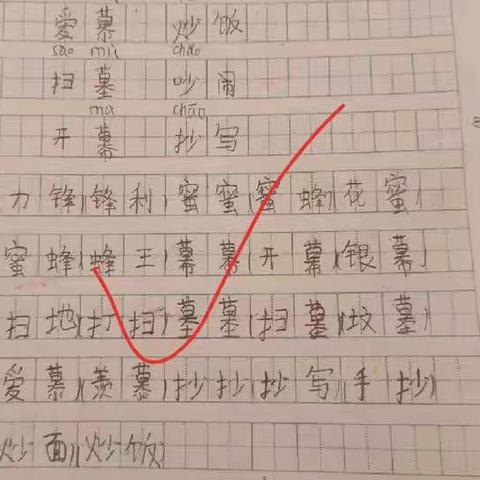 爱慕 炒饭
sǎo mù chǎo
扫墓 吵闹
mù chāo
开幕 抄写
力锋(锋利)蜜蜜(蜜蜂)(花蜜)
蜜蜂(蜂王)幕幕(开幕)(银幕)
扫地(打扫)墓墓(扫墓)(坟墓)
爱慕(羡慕)抄抄(抄写)(手抄)
炒面)(炒饭)